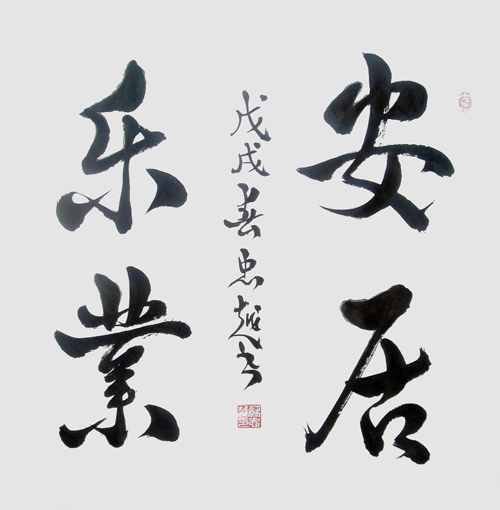 安居
乐業
戊戌春忠越书